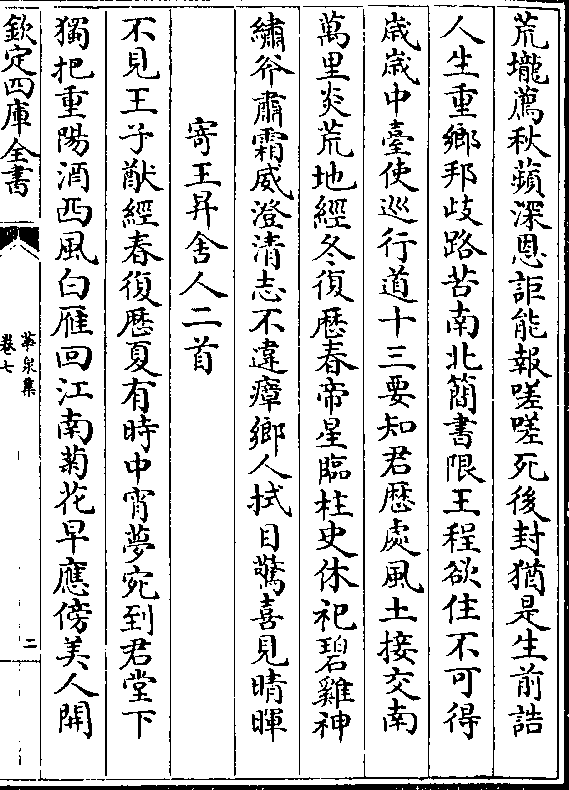 荒壠薦秋蘋深恩詎能報嗟嗟死後封猶是生前誥
人生重鄉邦歧路苦南北簡書限王程欲住不可得
歲歲中臺使巡行道十三要知君歷處風土接交南
萬里炎荒地經冬復歷春帝星臨柱史休祀碧雞神
繡斧肅霜威澄清志不違瘴鄉人拭目驚喜見晴暉
寄王昇舍人二首
不見王子猷經春復歷夏有時中宵夢宛到君堂下
獨把重陽酒西風白雁回江南菊花早應傍美人開
欽定四庫全書
華泉集
卷七
二